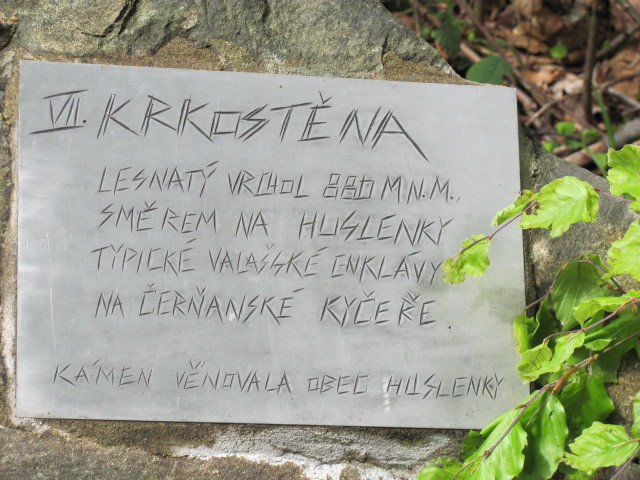 VII. KRKOSTĚNA
LESNATÝ VRCHOL 880 M N.M.,
SMĚREM NA HUSLENKY
TYPICKÉ VALAŠSKÉ ENKLÁVY
NA ČERŇANSKÉ KYČEŘE.
KÁMEN VĚNOVALA OBEC HUSLENKY